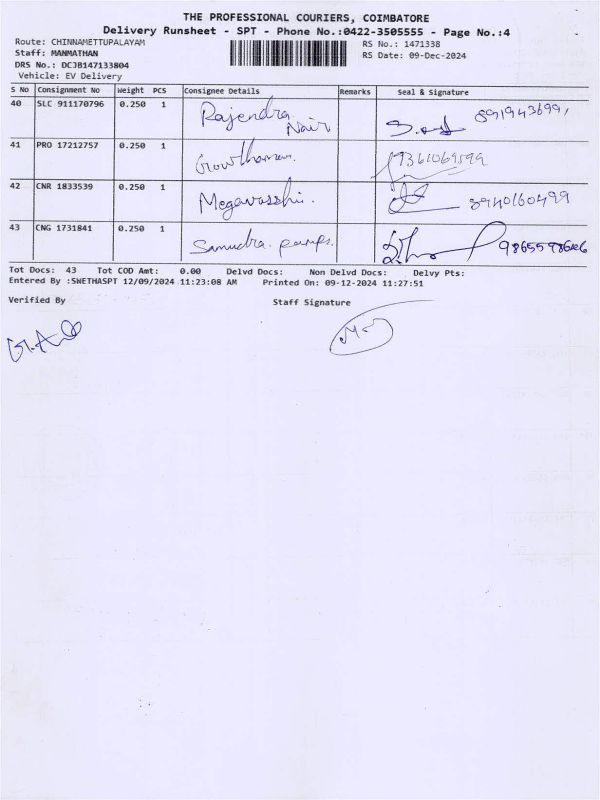 THE PROFESSIONAL COURIERS, COIMBATORE
Delivery Runsheet - SPT - Phone No.:0422-3505555 - Page No.:4
Route: CHINNAMETTUPALAYAM
Staff: MANMATHAN
DRS No.: DCJB147133804
Vehicle: EV Delivery
RS No.: 1471338
RS Date: 09-Dec-2024
S No Consignment No Weight PCS Consignee Details Remarks Seal & Signature
40 SLC 911170796 0.250 1 Rajendra Nair
41 PRO 17212757 0.250 1 Gowthaman. 9361069599
42 CNR 1833539 0.250 1 8940160499
43 CNG 1731841 0.250 1 Samudra pumps.
Tot Docs: 43 Tot COD Amt: 0.00 Delvd Docs: Non Delvd Docs: Delvy Pts:
Entered By :SWETHASPT 12/09/2024 11:23:08 AM Printed On: 09-12-2024 11:27:51
Verified By Staff Signature